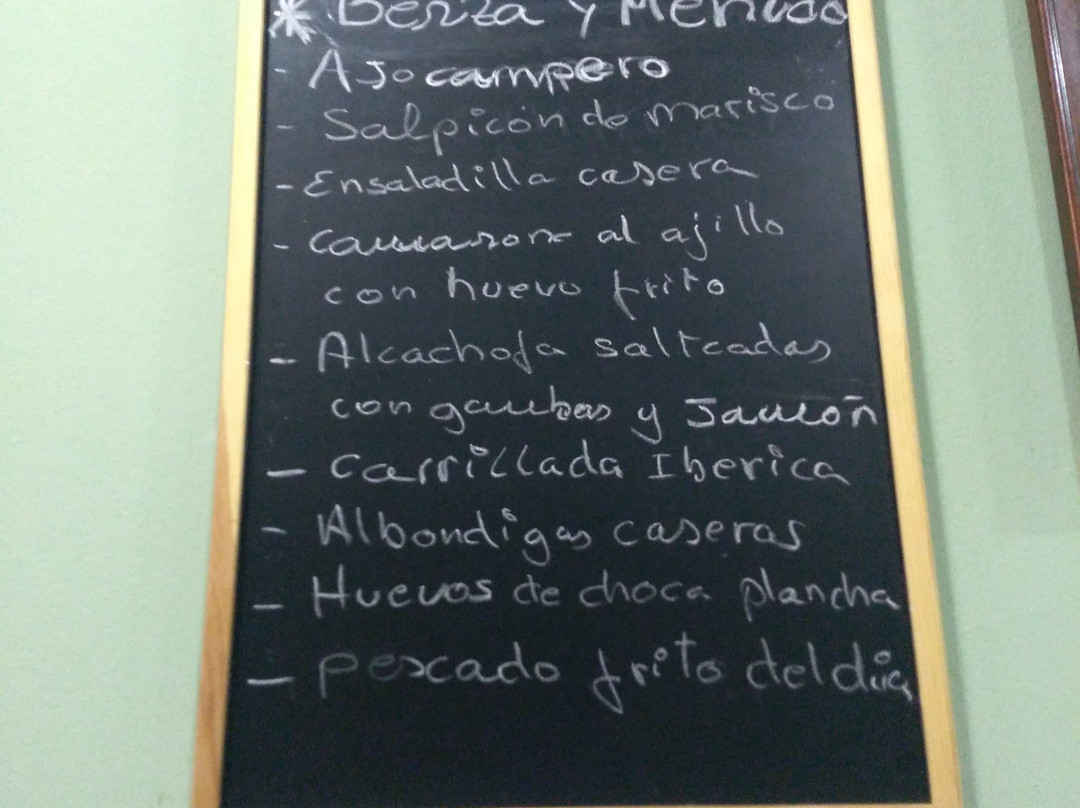 * Berza y Menudo
- Ajo campero
- Salpicón de marisco
- Ensaladilla casera
- Camarone al ajillo
con huevo frito
- Alcachofa salteadas
con gambas y Jamón
- Carrillada Iberica
- Albondigas caseras
- Huevos de choca plancha
- pescado frito del dia